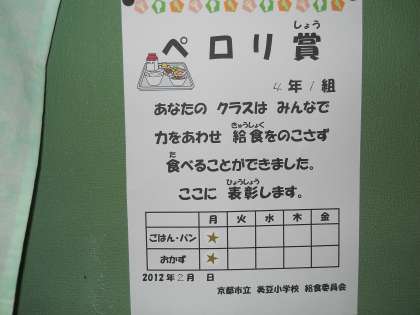 ペロリ賞
しょう
4年1組
あなたの クラスは みんなで
力をあわせ 給食をのこさず
きゅうしょく
食べることができました。
た
ここに 表彰します。
ひょうしょう
月 火 水 木 金
ごはん・パン ★
おかず ★
2012年2月 日
京都市立 葵小学校 給食委員会